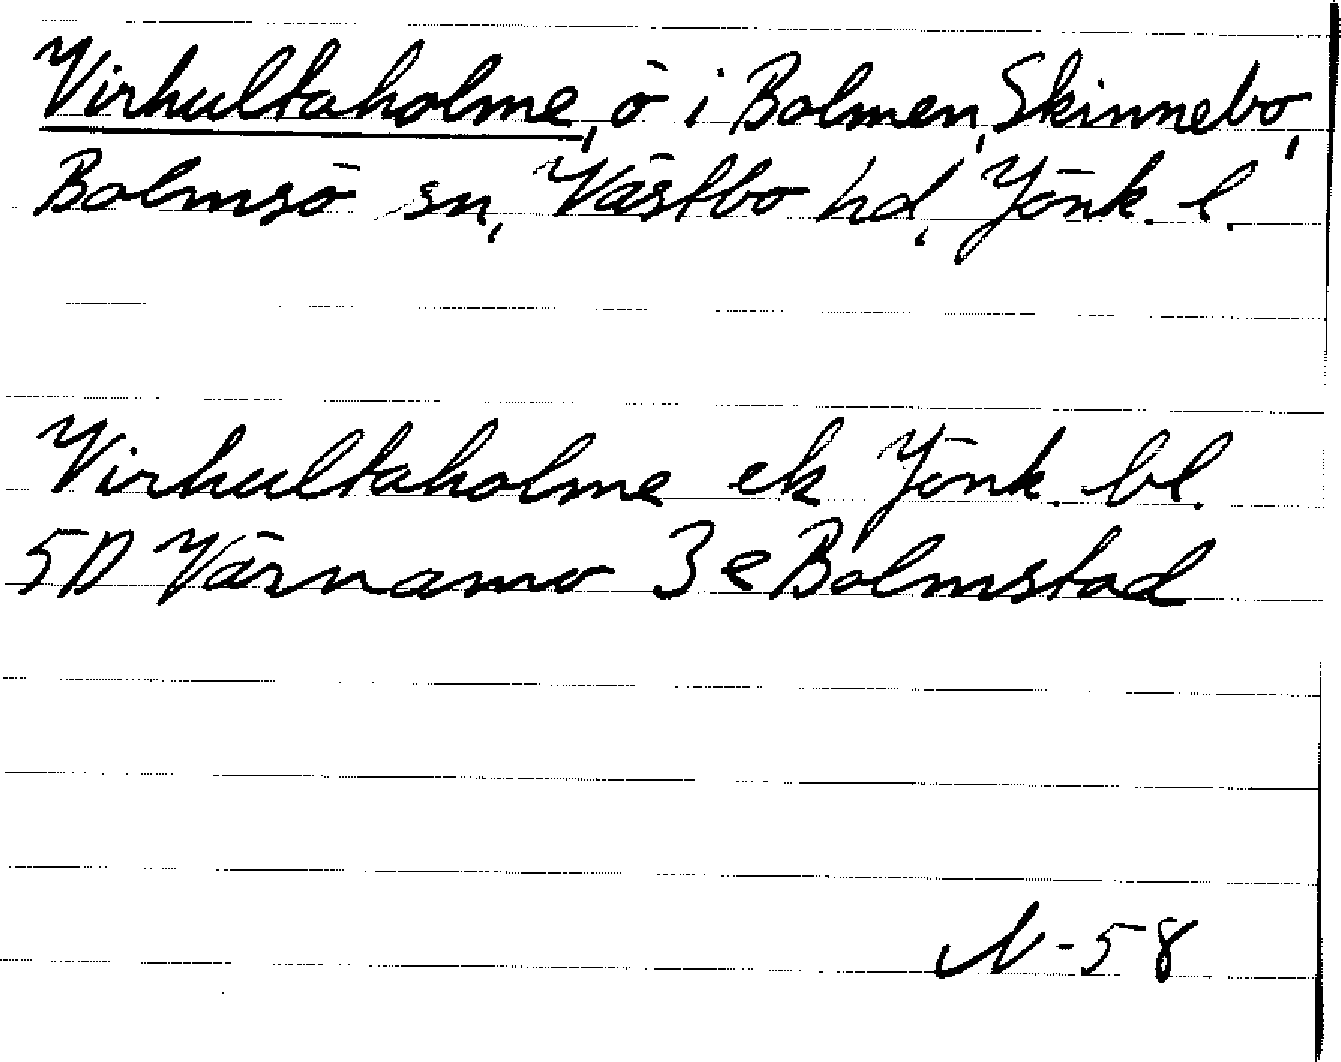 Virhultaholme, ö i Bolmen, Skinnebo,
Bolmsö sn, Västbo hd, Jönk. l.
Virhultaholme ek Jönk. bl.
5D Värnamo 3e Bolmstad
N-58